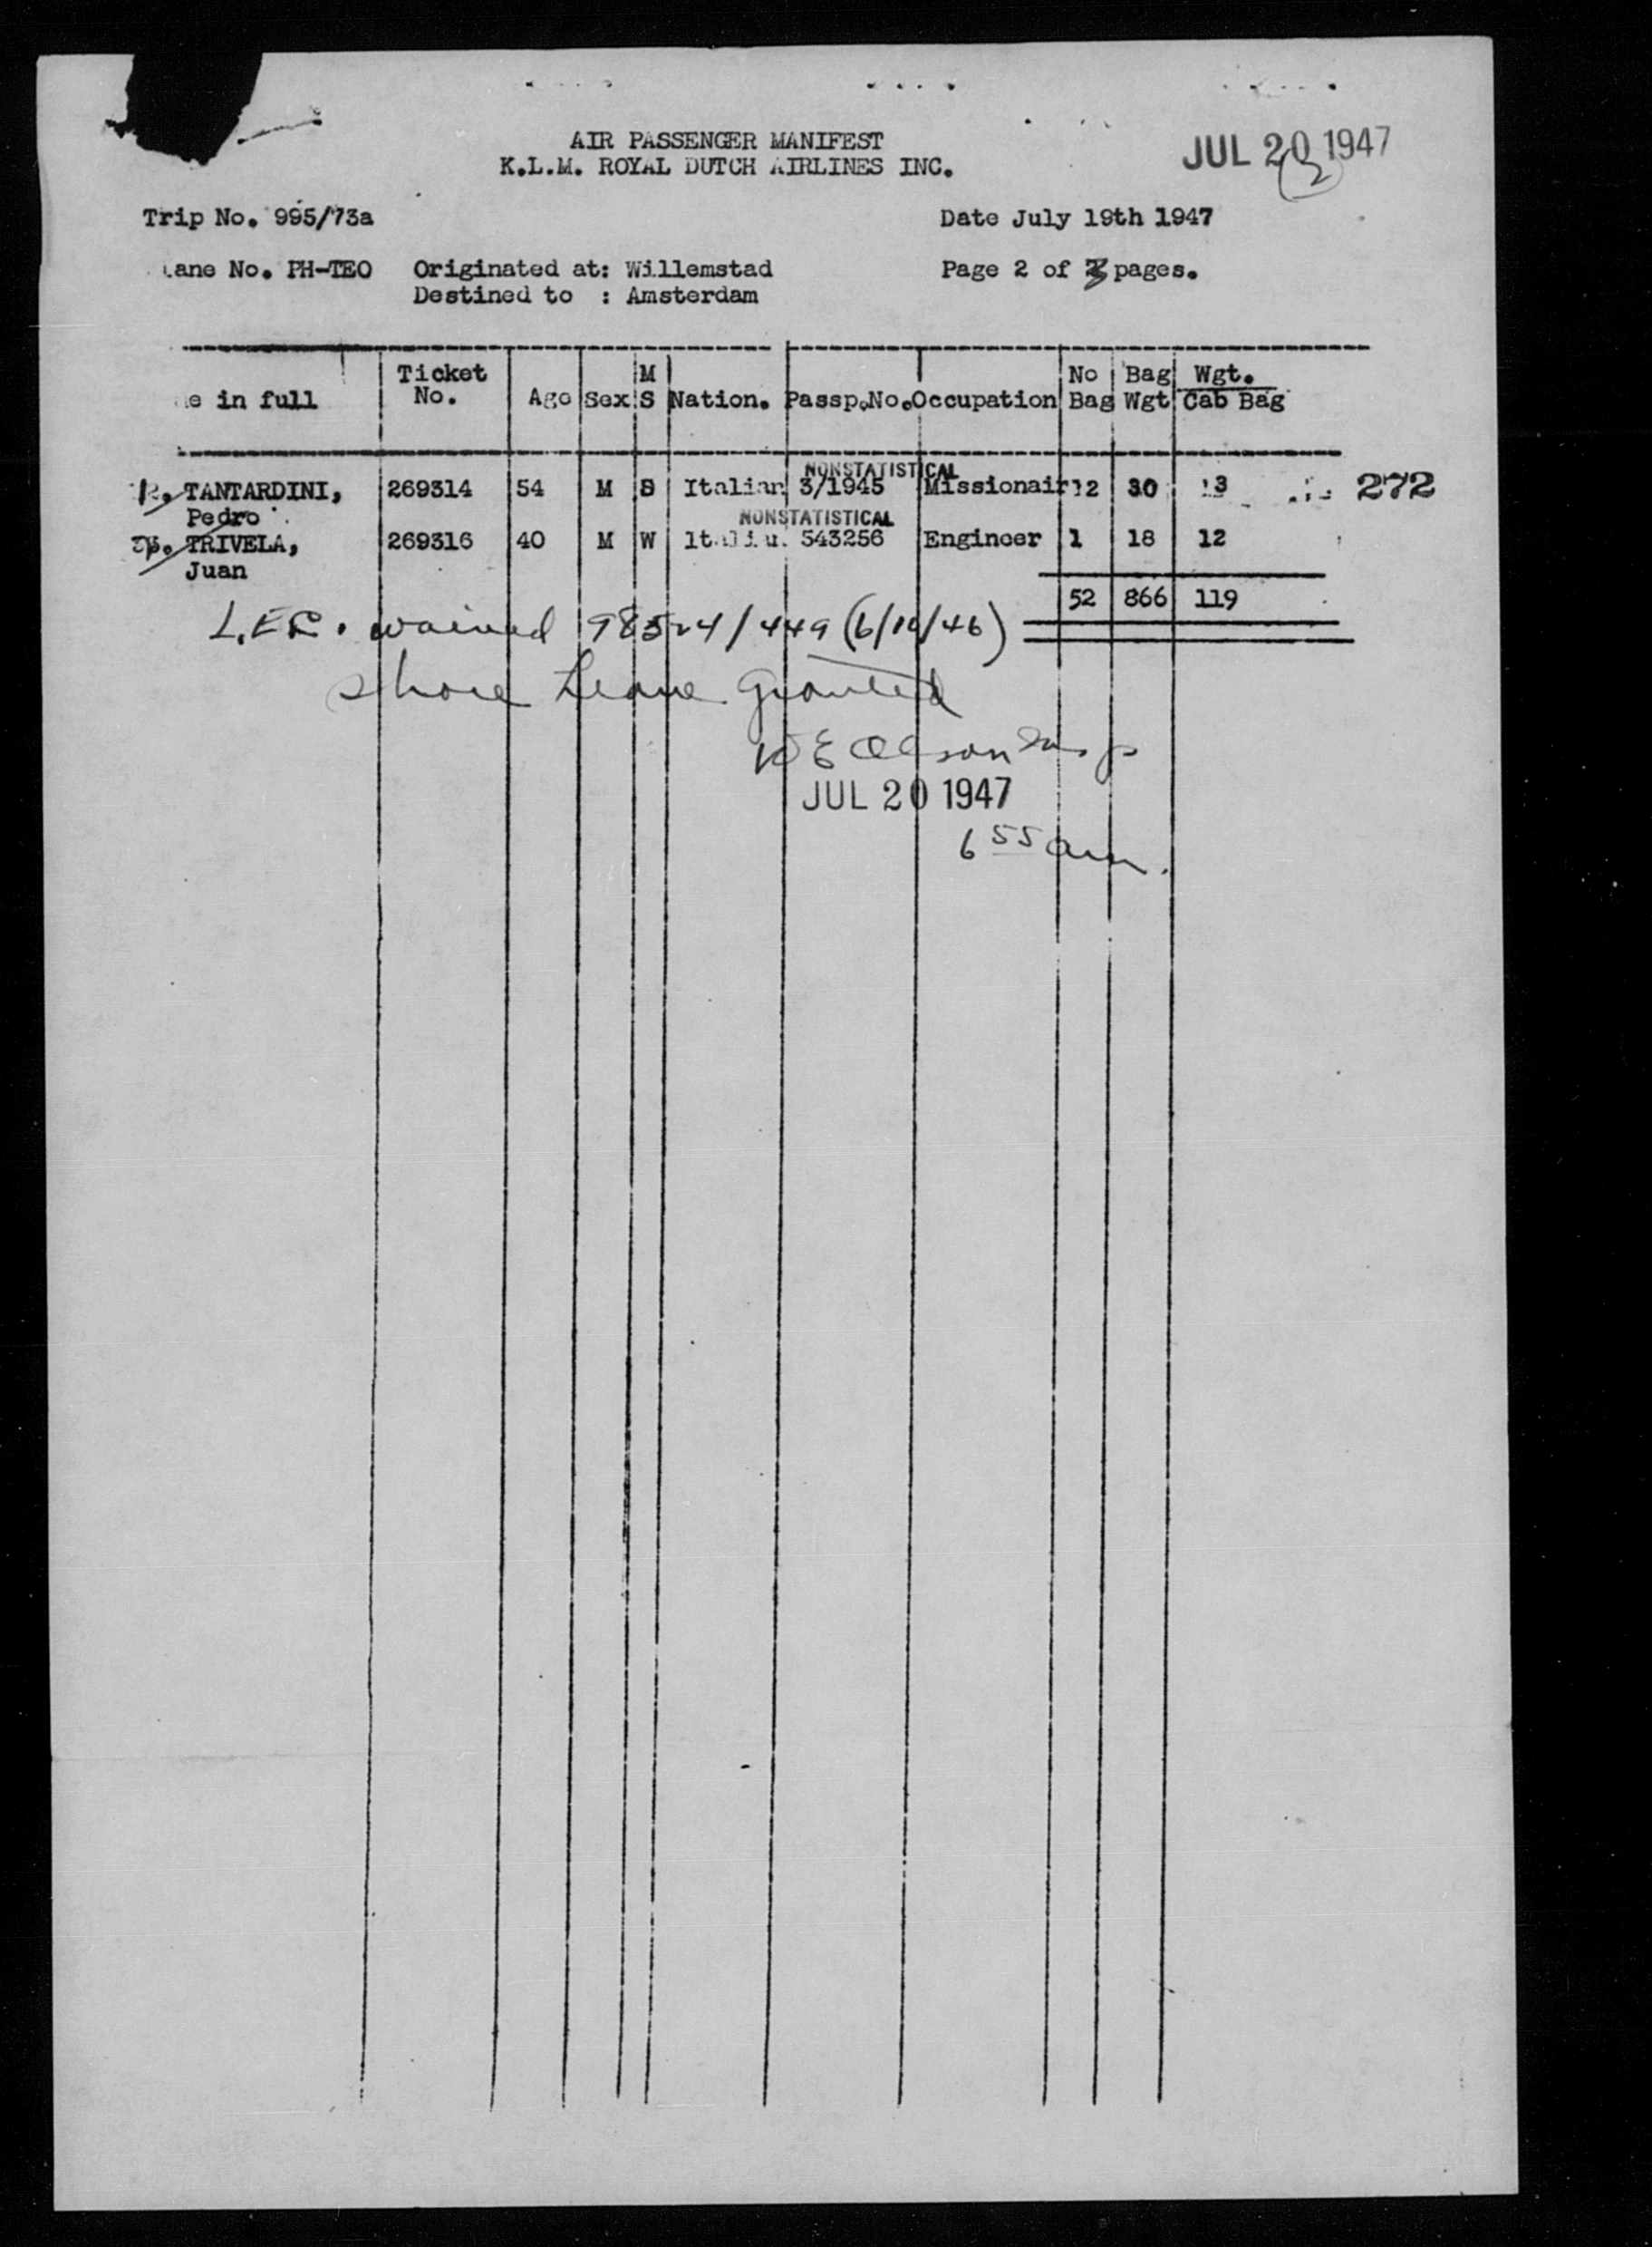 AIR PASSENGER MANIFEST
K.L.M. ROYAL DUTCH AIRLINES INC.
JUL 20 1947
2
Trip No. 995/73a Date July 19th 1947
lane No. PH-TEO Originated at: Willemstad Page 2 of 3 pages.
Destined to : Amsterdam
e in full Ticket No. Age Sex M S Nation. Passp.No. Occupation No Bag Bag Wgt Wgt. Cab Bag
NONSTATISTICAL
1. TANTARDINI, 269314 54 M S Italian 3/1945 Missionair 2 30 13 272
Pedro
NONSTATISTICAL
2. TRIVELA, 269316 40 M W Italian 543256 Engineer 1 18 12
Juan
52 866 119
waived 98524/449 (6/10/46)
Shore Leave Granted
JUL 20 1947
6 55 am.